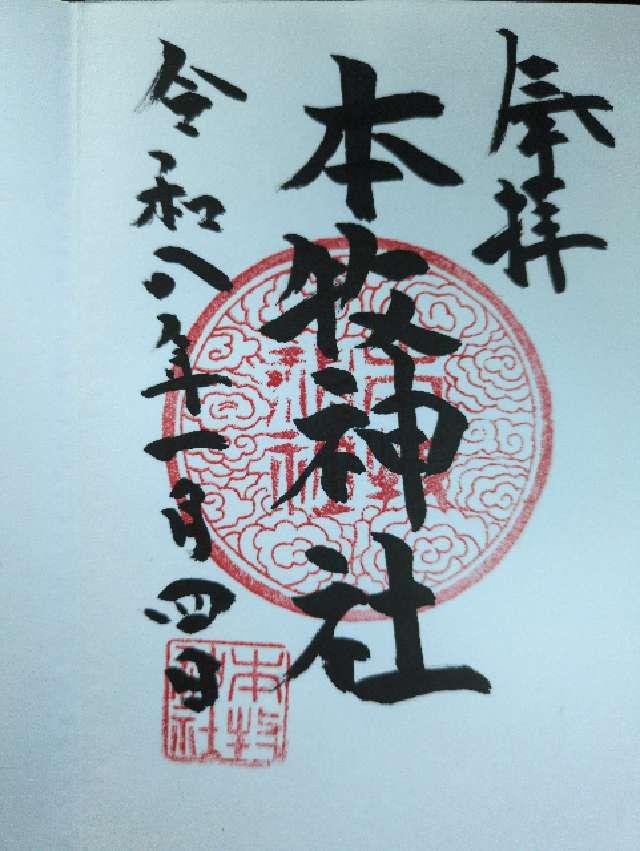 奉拝
本牧神社
令和八年一月四日
本牧
神社